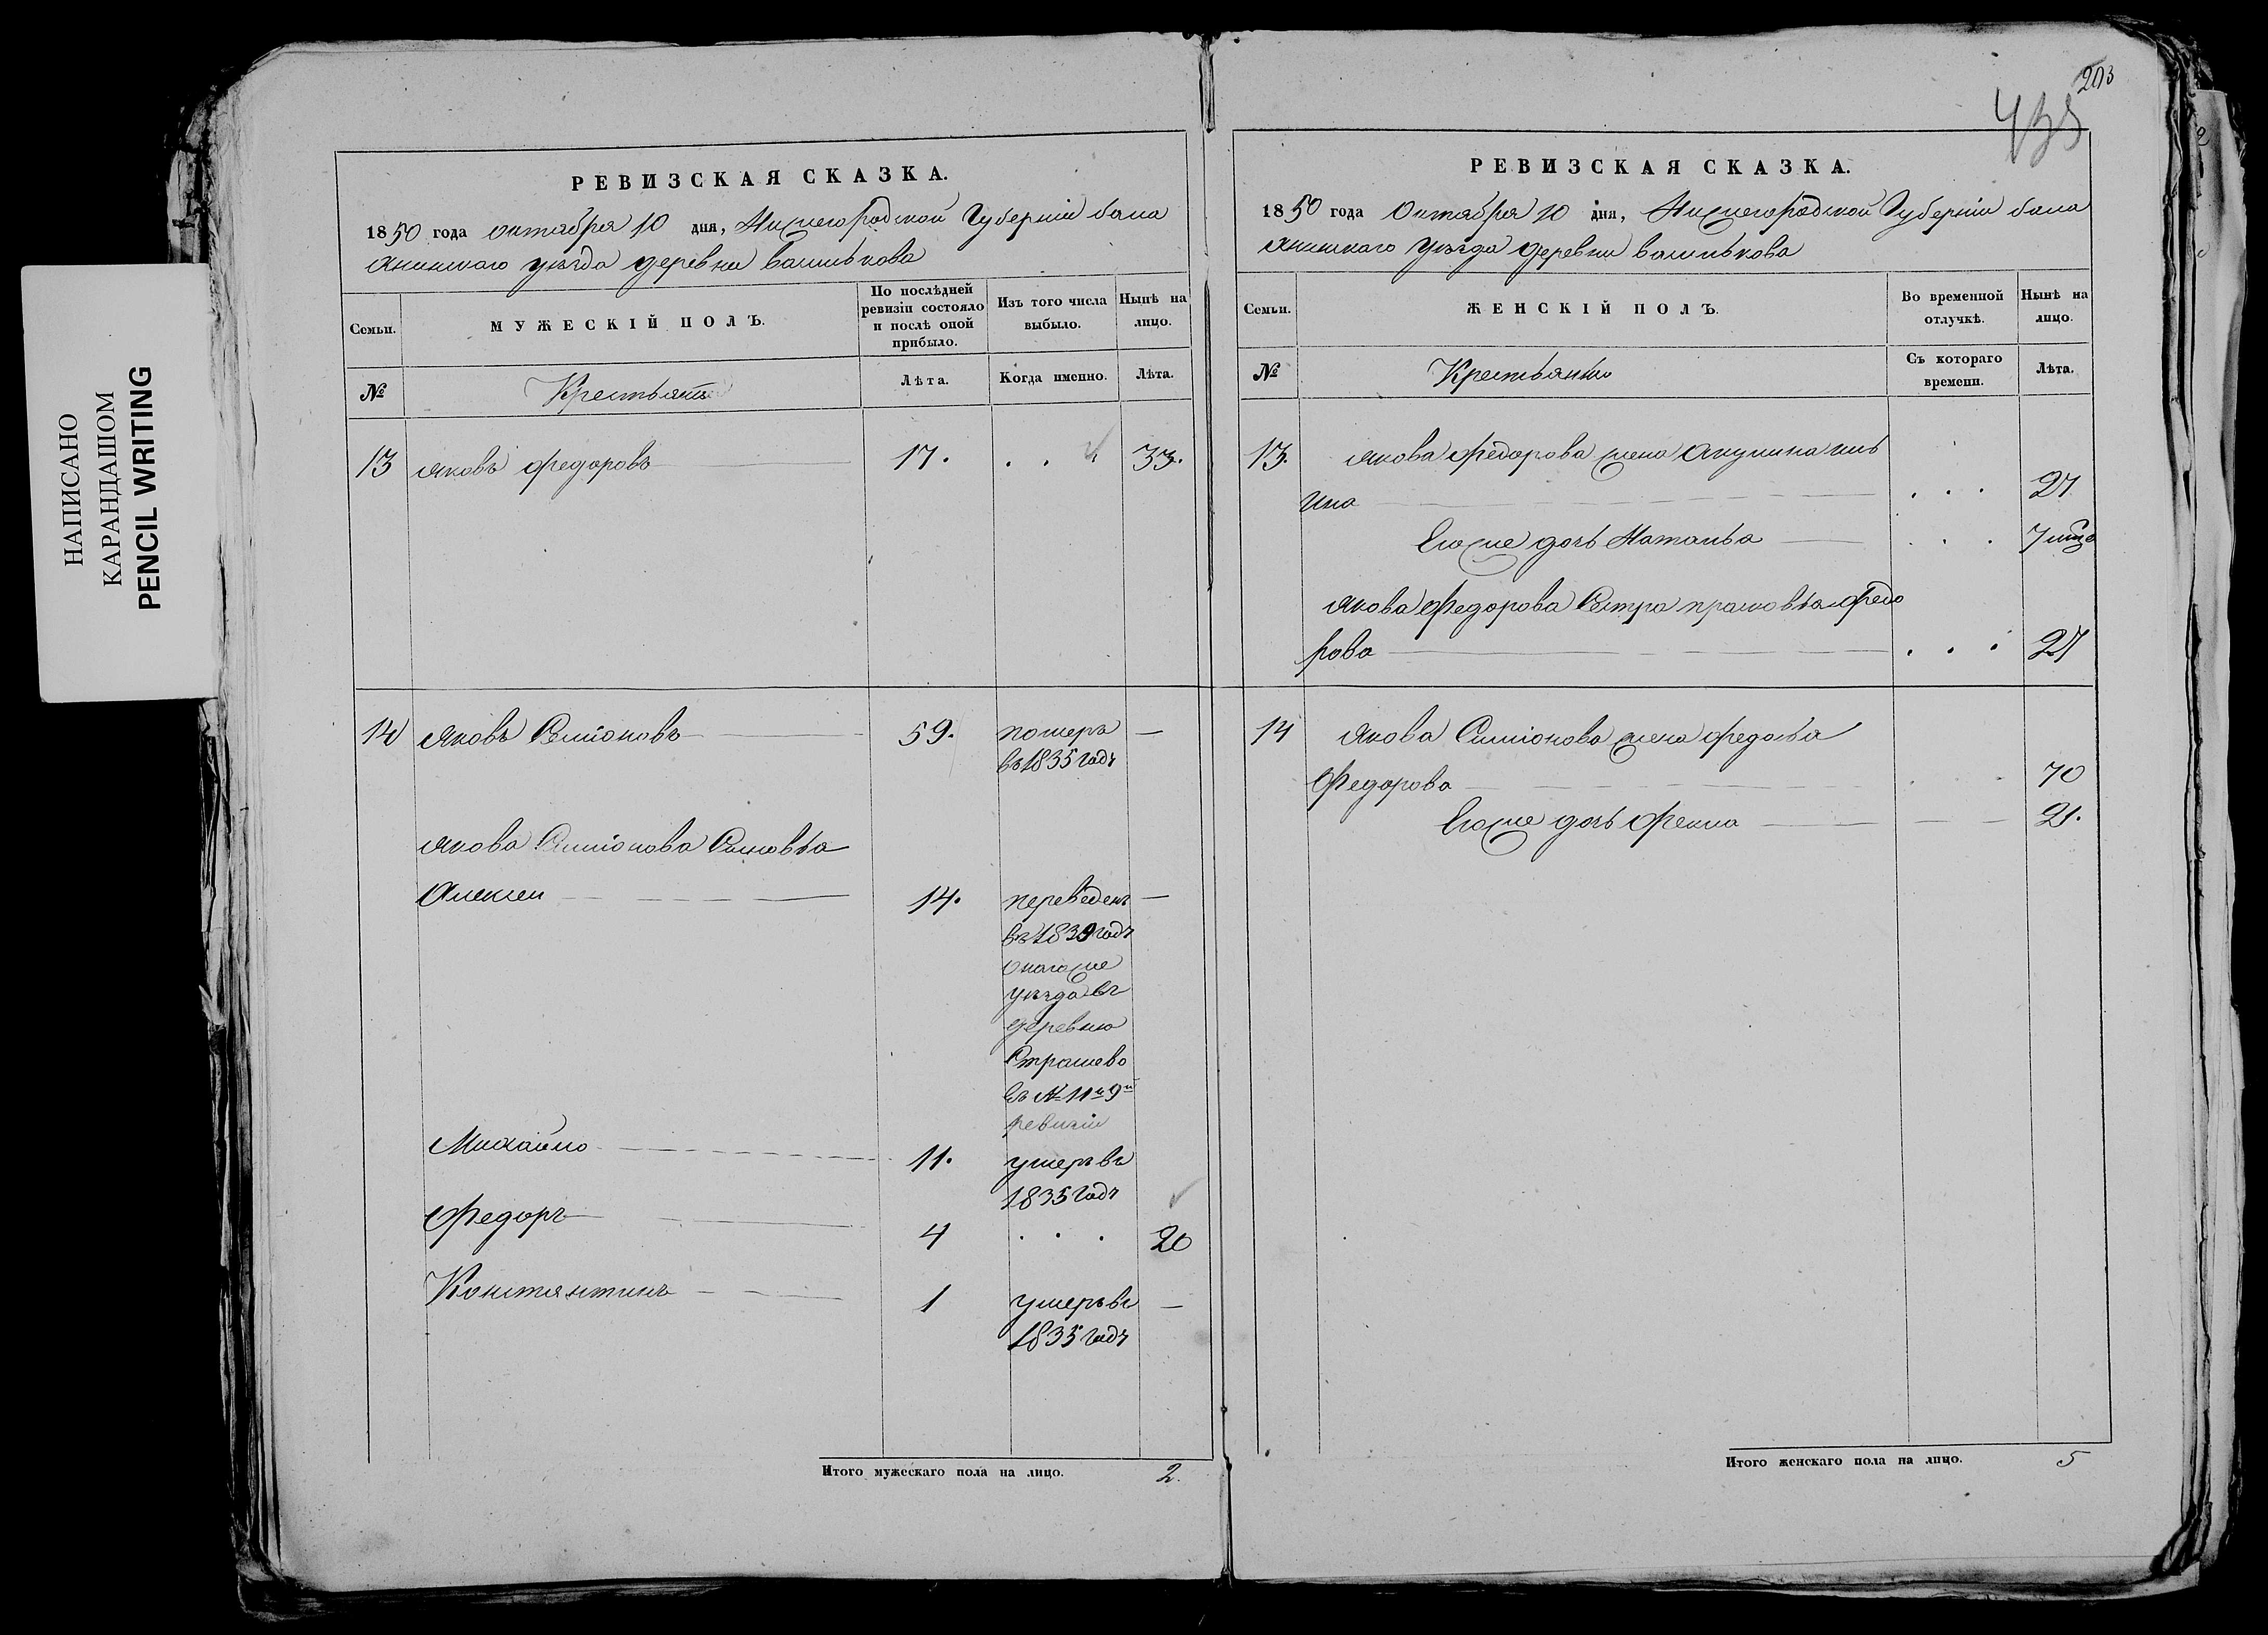 НАПИСАНО
КАРАНДАШОМ
PENCIL WRITING
РЕВИЗСКАЯ СКАЗКА.
1850 года октября 10 дня, Нижегородской Губернии бала
хнинскаго уезда деревни
Семьи.
МУЖЕСКІЙ ПОЛЪ.
По послѣдней
ревизіи состояло
и послѣ оной
прибыло.
Изъ того числа
выбыло.
Нынѣ на
лицо.
№
Крестьяне
Лѣта.
Когда именно.
Лѣта.
13 Яковъ Федоровъ 17. 33.
14 Яковъ Семіоновъ 59. померъ —
въ 1835 годѣ
Якова Симіонова Сыновья
Алексеи 14. переведенъ —
въ 1839 годѣ
оногоже
уезда въ
деревню
Страшево
въ № 11й 9й
ревизіи
Михайло 11. умеръ въ
1835 годѣ
Федоръ 4 20
Константинъ 1 умеръ въ —
1835 годѣ
Итого мужескаго пола на лицо. 2.
203
435
РЕВИЗСКАЯ СКАЗКА.
1850 года Октября 10 дня, Нижегородской Губерніи бала
хнинскаго уезда деревни
Семьи.
ЖЕНСКІЙ ПОЛЪ.
Во временной
отлучкѣ.
Нынѣ на
лицо.
№
Крестьянки
Съ котораго
времени.
Лѣта.
13. Якова Федорова жена Акулина
ина 27
Егоже дочь Наталья 7
Якова Федорова Сестра прасковья Федо
рова 27
14 Якова Симіонова жена Федосья
Федорова 70
Егоже дочь Фекла 21.
Итого женскаго пола на лицо. 5